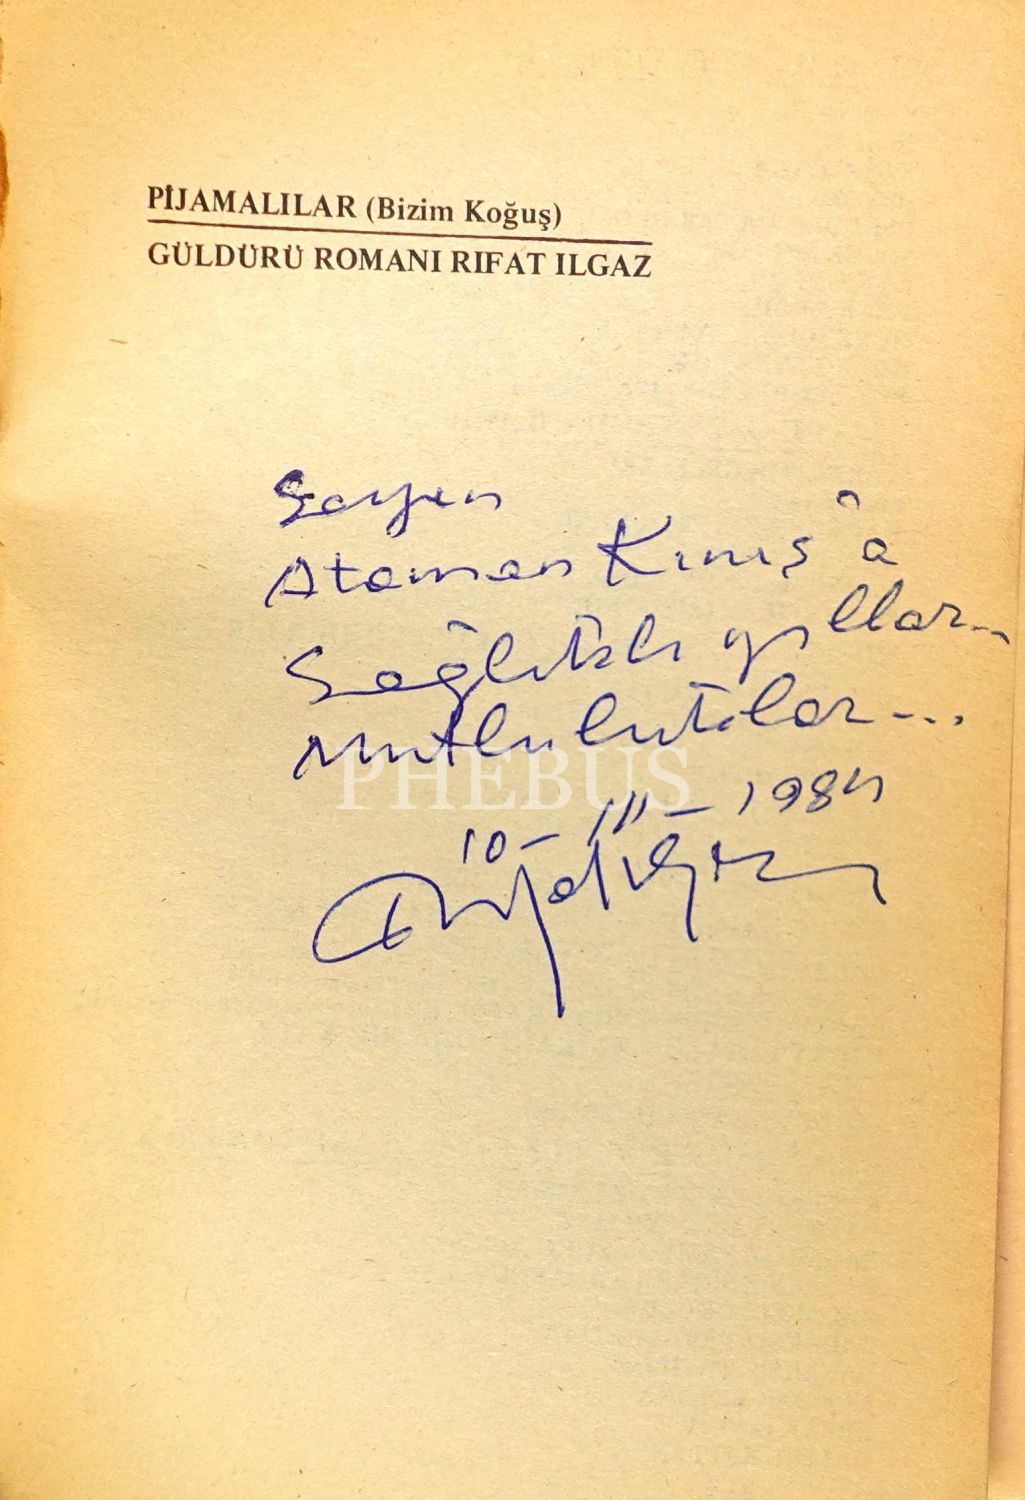 PİJAMALILAR (Bizim Koğuş)
GÜLDÜRÜ ROMANI RIFAT ILGAZ
Sayın
Ataman Kınış'a
Sağlıklı yıllar...
mutluluklar...
PHEBUS
10-III-1984
Rıfat Ilgaz